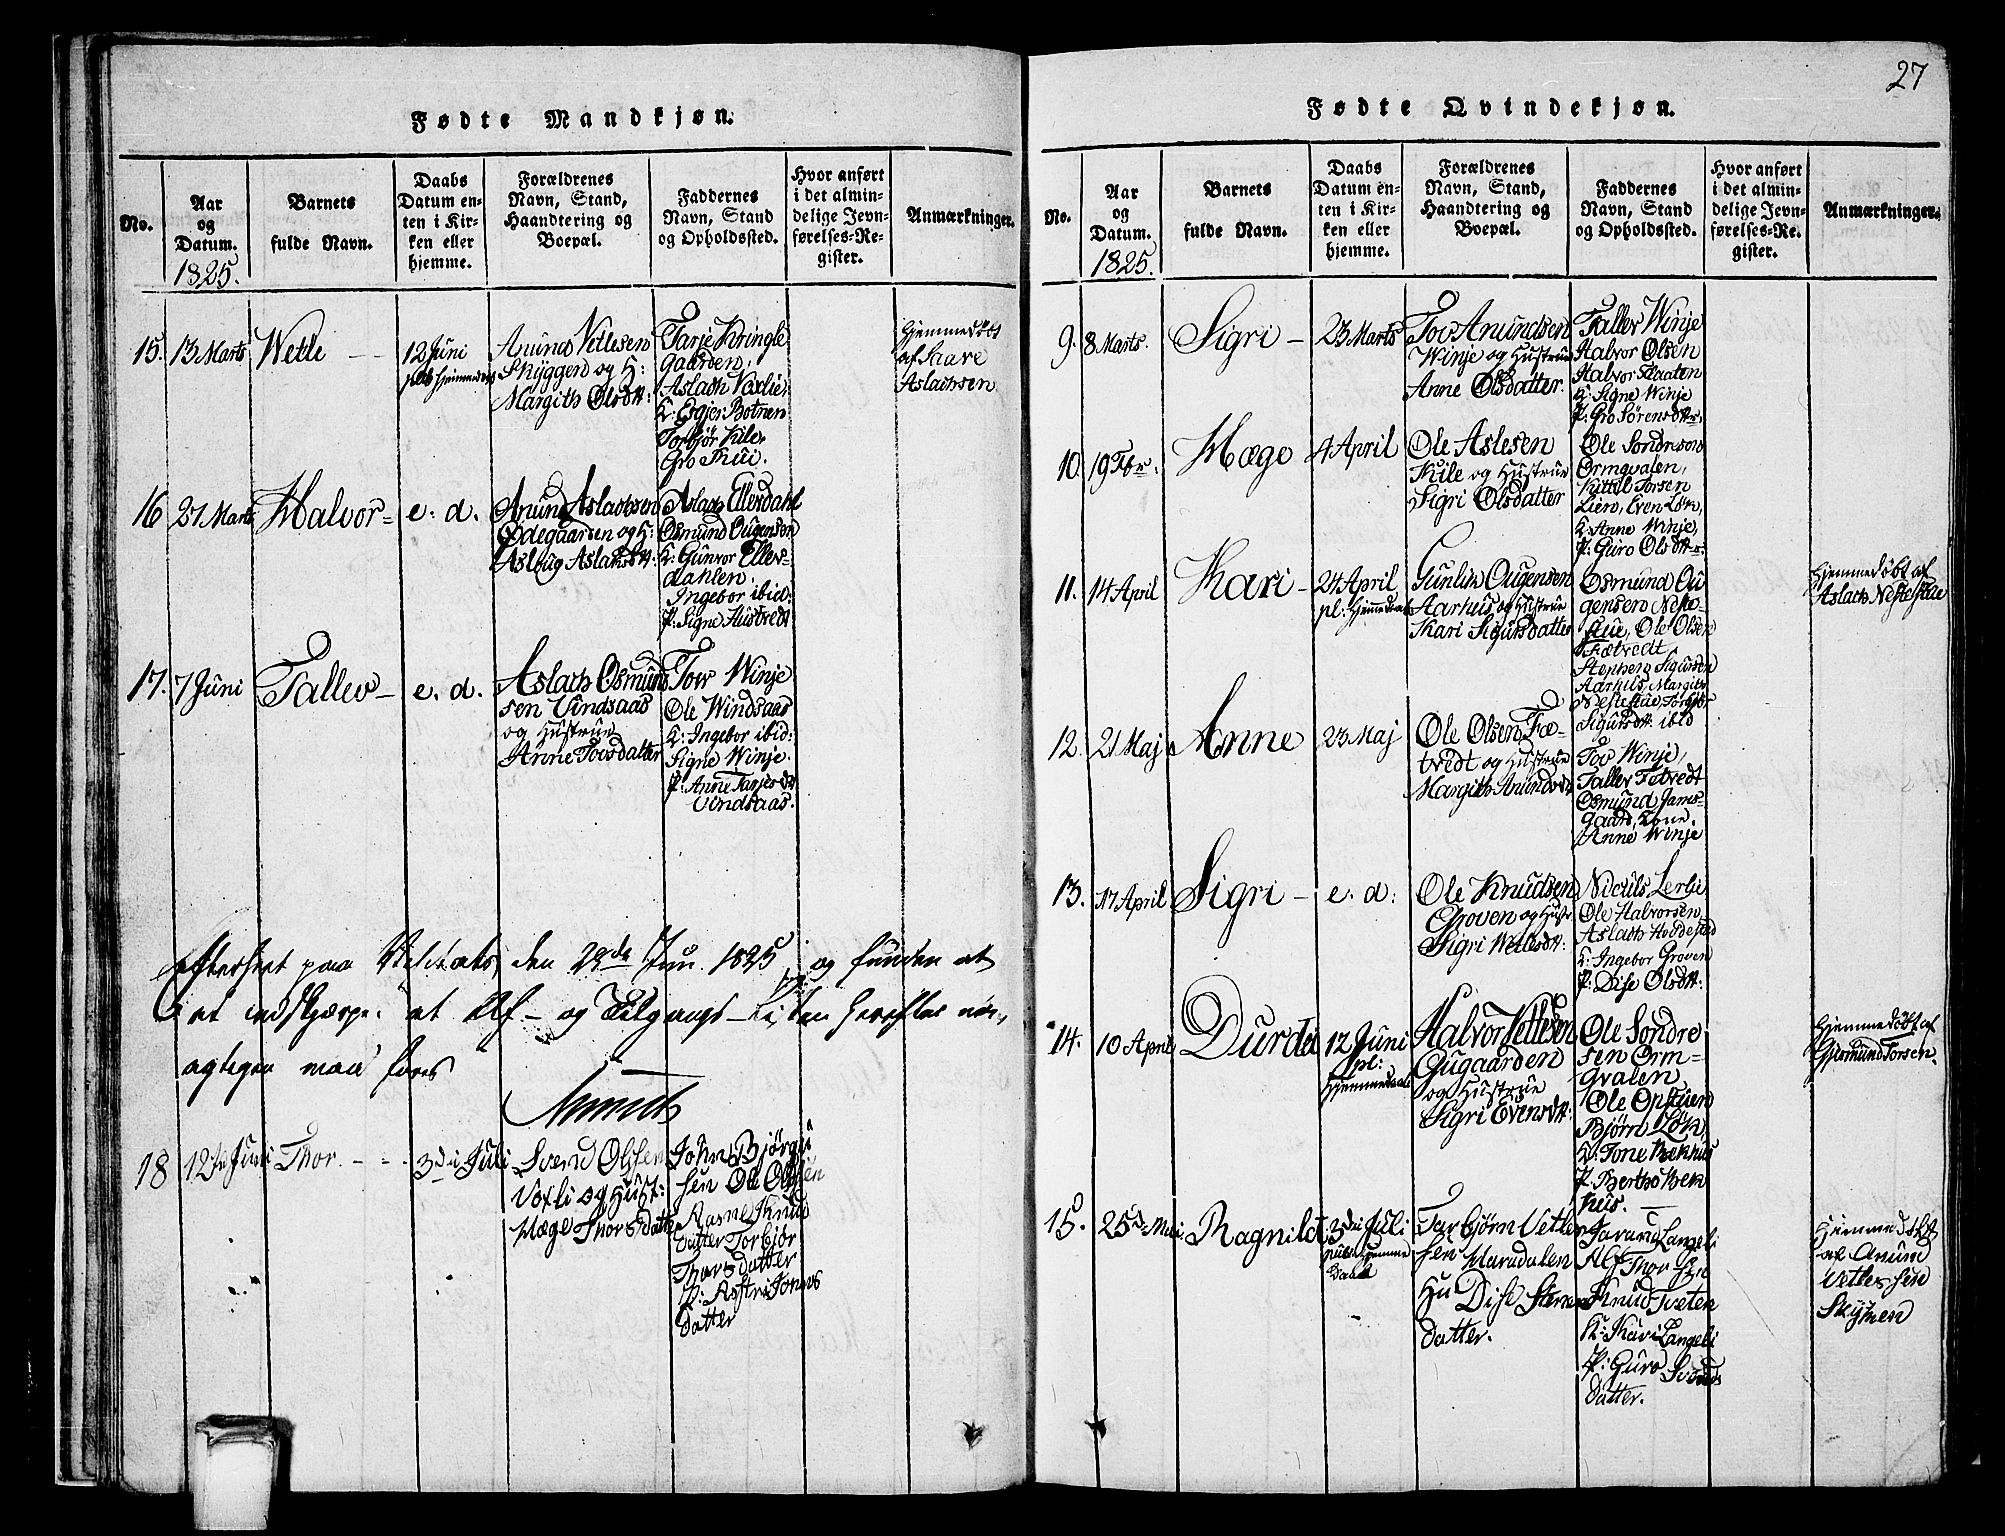 27
Fødte Mandkjøn.
No.
Aar
og
Datum.
1825.
Barnets
fulde Navn.
Daabs
Datum en-
ten i Kir-
ken eller
hjemme.
Forældrenes
Navn, Stand,
Haandtering og
Boepæl.
Faddernes
Navn, Stand
og Opholdssted.
Hvor anført
i det almin-
delige Jevn-
førelses-Re-
gister.
Anmærkninger.
15.
13 Marts
Wetle
12 Juni
Anund Vetlesen
Skyggen og H:
Margith Olsdtr:
Tarje Kringle
gaarden,
Aslach Vaxlie
K: Egjer Botnen
Torbjør Kile
Gro Kui.
Hjemmedøbt
af Saave
Aslachsen
16
27 Marts
Halvor
e. d.
Anund Aslachsen
Ødegaarden og H:
Aslaug Aslaksdtr:
Aslach Ellersdahl
Osmund Ougensen
K: Gunvor Ellers-
dahlen.
Ingebor ibid:
P: Signe Austredt
17.
7 Juni
Tallev
e. d.
Aslach Osmund
sen Vindsaas
og Hustrue
Anne Tovsdatter
Tov Winje
Ole Windsaas
K: Ingebor ibid:
Signe Winje
P: Anne Tarjesdtr
Vindsaas.
Efterseet paa Visitats, den 22de Jun. 1825 og funden at
at indskjærpe, at Af- og Tilgangs-Listen herefter nøi-
agtigen maa føres
18
12te Juni
Thor.
3die Juli
Svend Olssen
Voxli og Hust:
Mæge Thorsdatter
John Bjørgu
sen Ole Olssen
Aasne Knud
datter Torbjør
Thorsdatter
P: Astri Jonns
datter
Fødte Qvindekjøn.
No.
Aar
og
Datum.
1825.
Barnets
fulde Navn.
Daabs
Datum en-
ten i Kir-
ken eller
hjemme.
Forældrenes
Navn, Stand,
Haandtering og
Boepæl.
Faddernes
Navn, Stand
og Opholdssted.
Hvor anført
i det almin-
delige Jevn-
førelses-Re-
gister.
Anmærkninger.
9.
8 Marts.
Sigri
23 Marts
Tov Anundsen
Winje og Hustrue
Anne Olsdatter.
Tallev Winje
Halvor Olsen
Halvor Flaaten
K: Signe Winje
P: Gro Sørensdtr
10.
19 Fbr.
Mæge
4 April
Ole Aslesen
Kile og Hustrue
Sigri Olsdatter
Ole Sondresen
Ormgvalen,
Kittil Torsen
Liero, Even Løin,
K: Anne Winje,
P: Guro Olsdtr
11.
14 April
Kari
24 April
Gunlin Ougensen
Aarhus og Hustrue
Kari Sigursdatter
Osmund Ou
gensen Neste-
stue, Ole Olsen
Fætvedt
Stenberg Sigursen
Aarhus, Margith
Nestestue, Torbjør
Sigursdtr: ibid
Hjemmedøbt af
Aslach Nestestue
12.
21 Maj
Anne
23 Maj
Ole Olsen Fæ-
tvedt og Hustrue
Margith Anundsdtr
Tov Winje,
Tallev Fætvedt
Osmund Jams-
gaard, Kone.
Anne Winje
13.
17 April
Sigri
e. d:
Ole Knudsen
Groven og Hustr
Sigri Wetlesdtr:
Nicuils Lerlie
Ole Halvorsen,
Aslach Hoddestad
K: Ingebor Groven
P: Dise Olsdtr:
14.
10 April
Durdei
12 Juni
pl:
Hjemmedaab
Halvor Vetlesen
Gugaarden
og Hustrue
Sigri Evensdtr:
Ole Sondre
sen Orm-
gvalen
Ole Opstuen
Bjørn Løin,
K: Tone Bækhus
P: Bertho Bek
hus.
Hjemmedøbt af
Gjermund Torsen.
15.
25de Mai
Ragnild
3die Juli
Hjemme
daab
Tarbjørn Vetle
sen Marsdalen
Hu Dise Steen
datter.
Tavard Langeli
Alf Thor
Knud Tveten
K: Kari Langeli
P: Guro Svends
datter.
Hjemmedøbt
af Anund
Vetlessen
Skyen